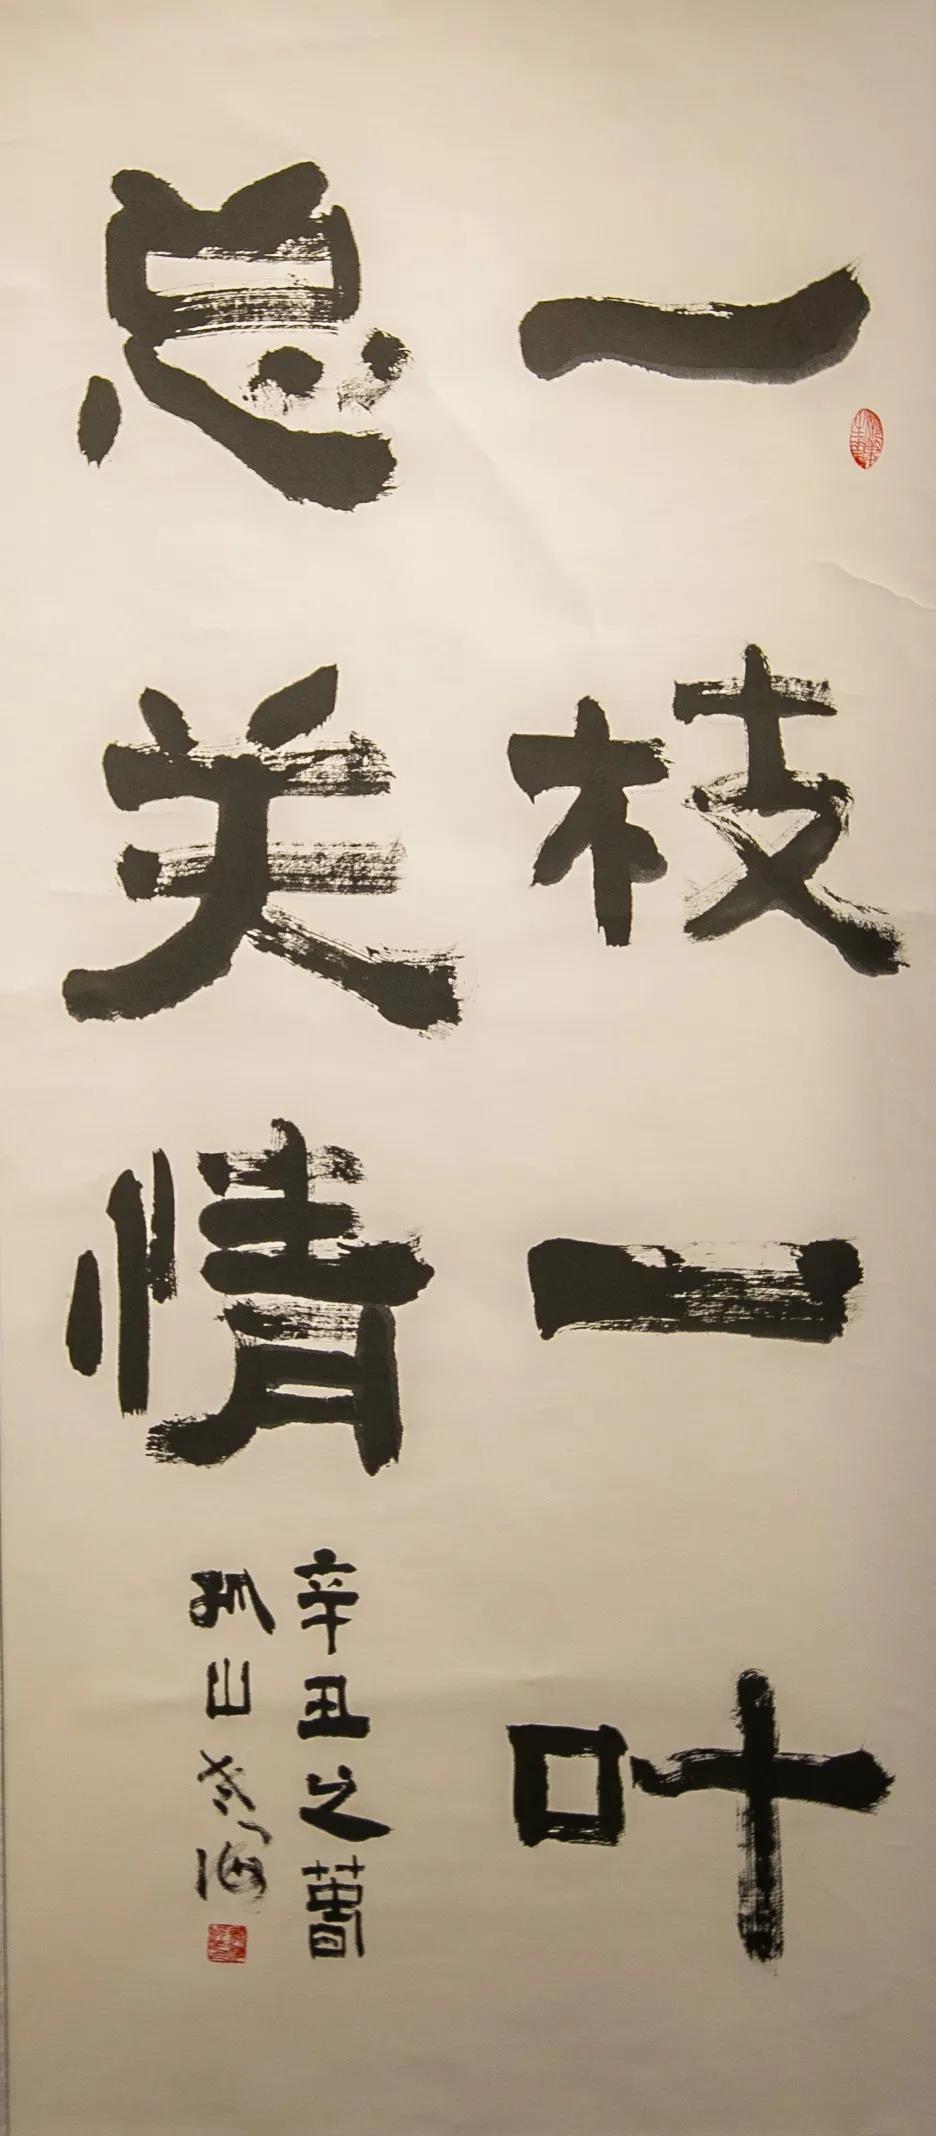 一枝一叶
总关情
辛丑之春
孤山老海